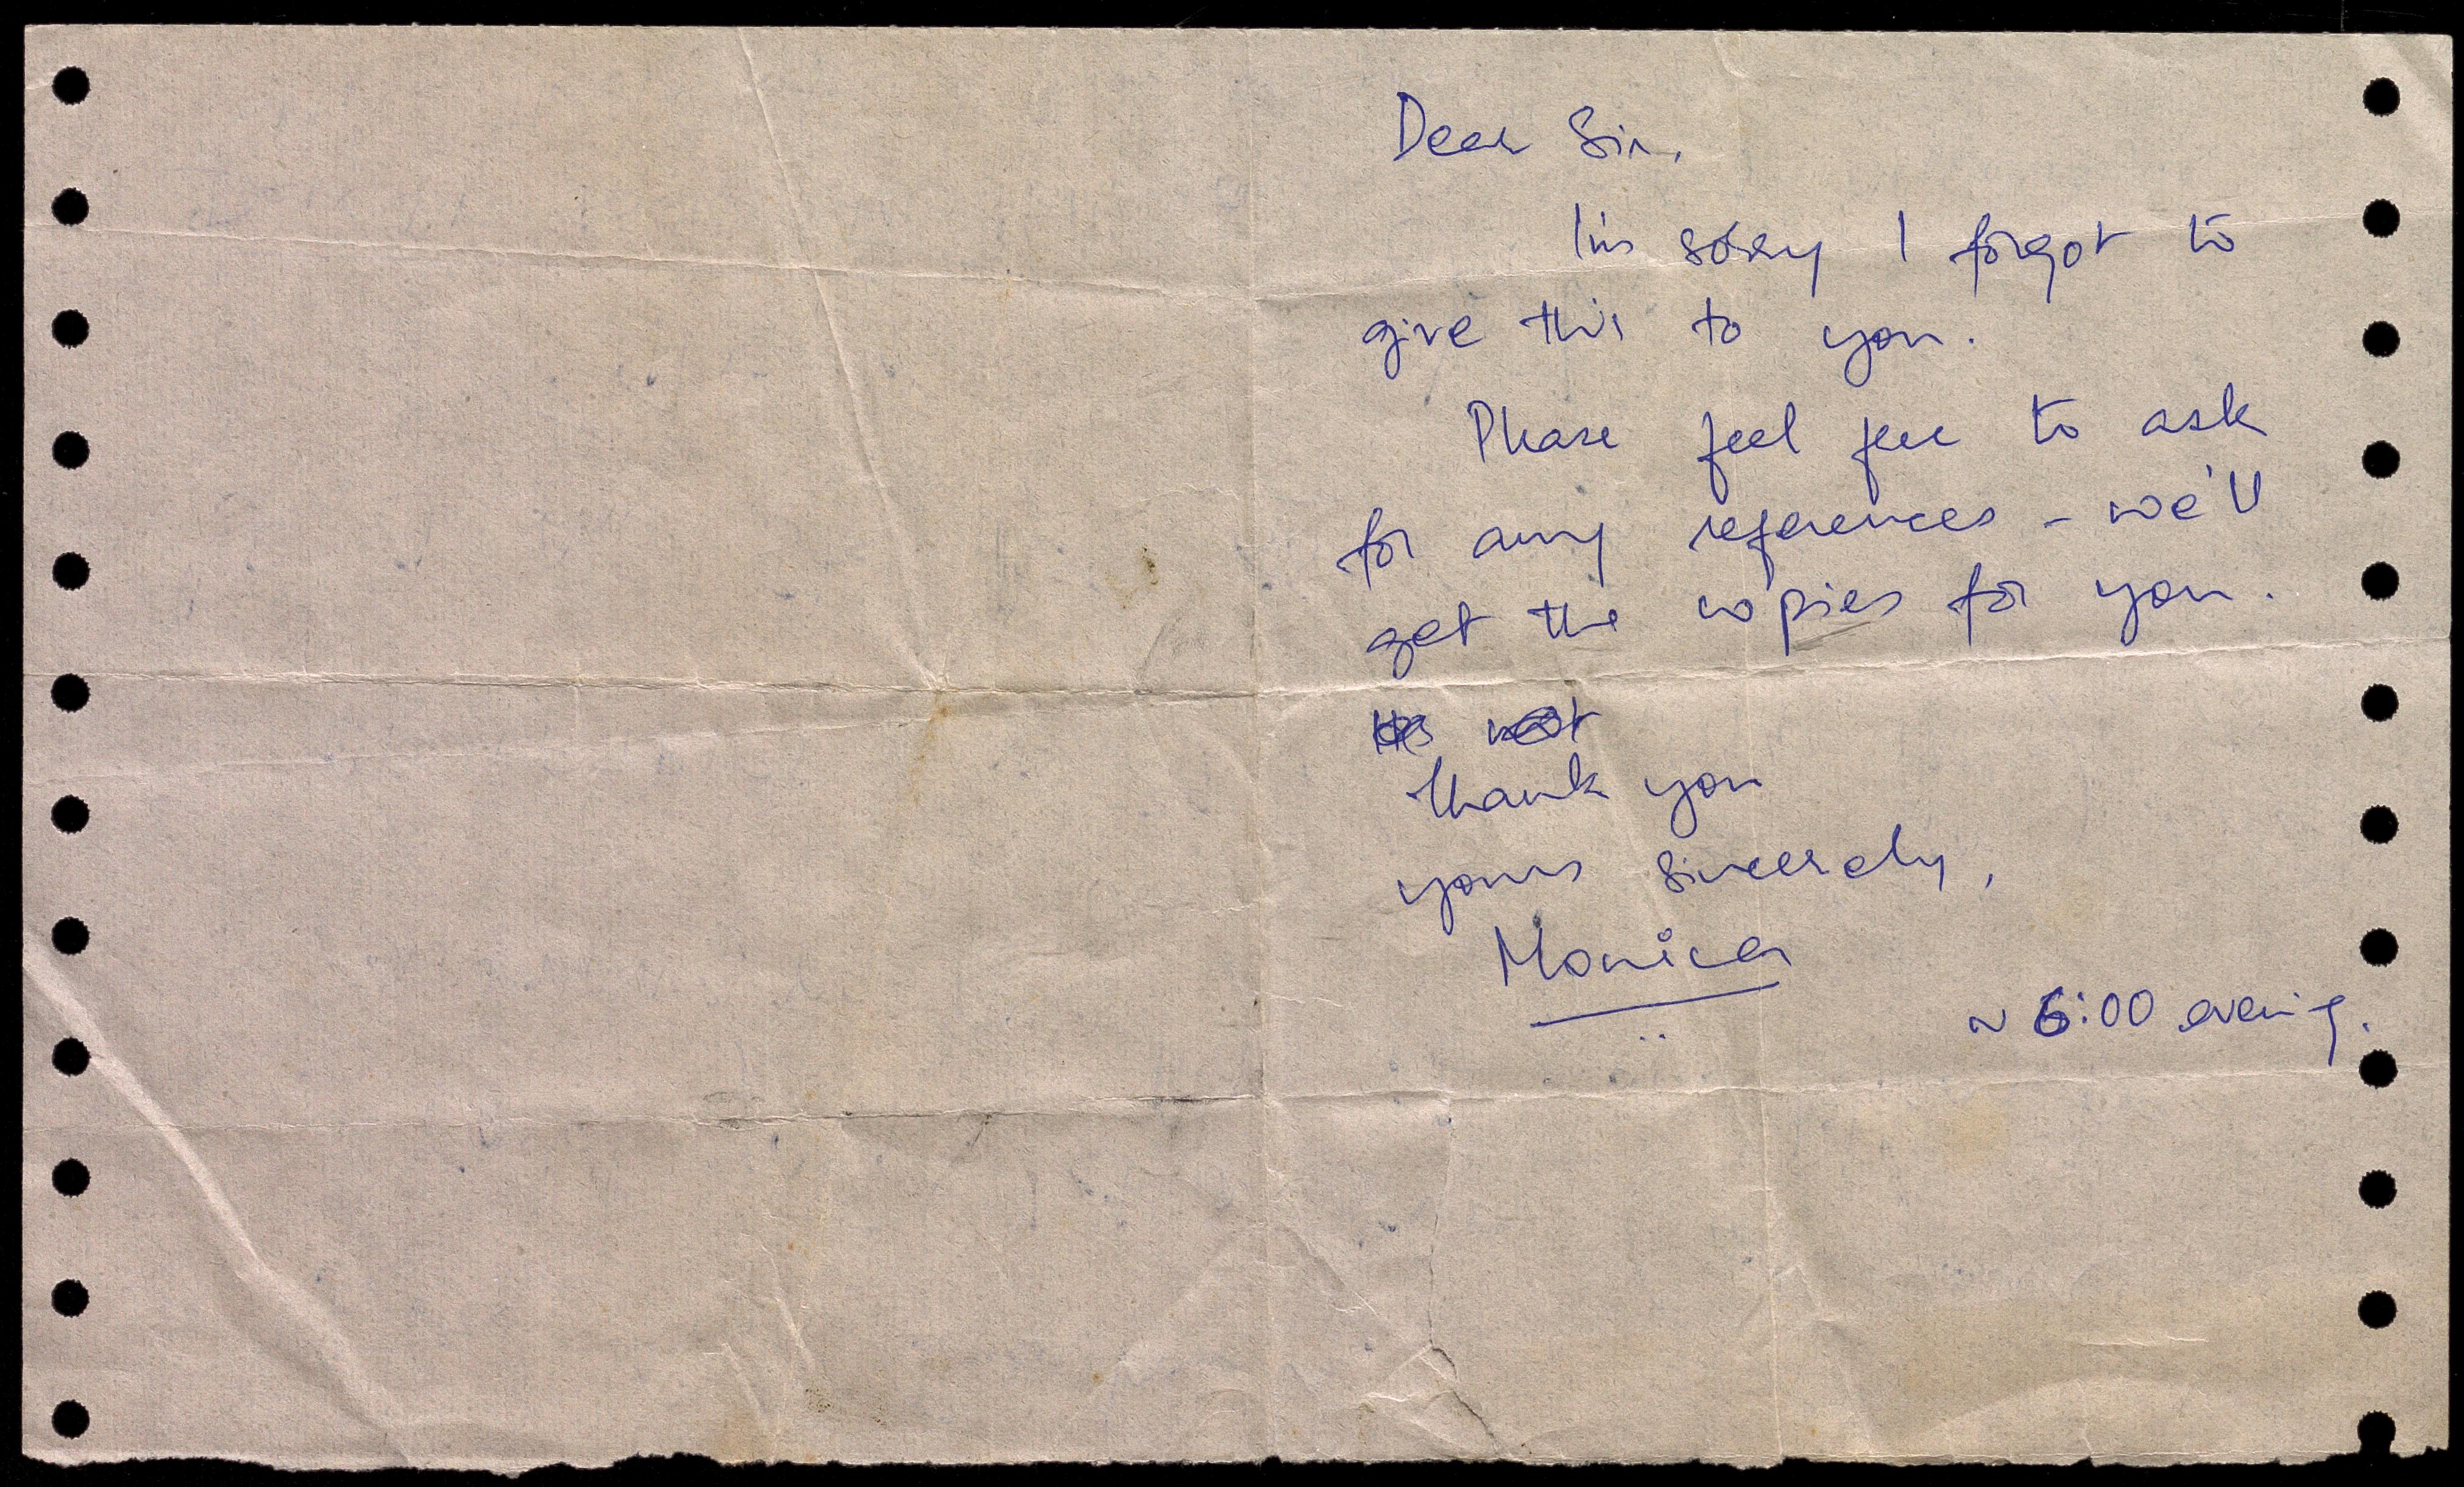 Dear Sir,
I'm sorry I forgot to
give this to you.
Please feel free to ask
for any references - we'll
get the copies for you.
Thank you
yours sincerely,
Monica
~ 6:00 evening.